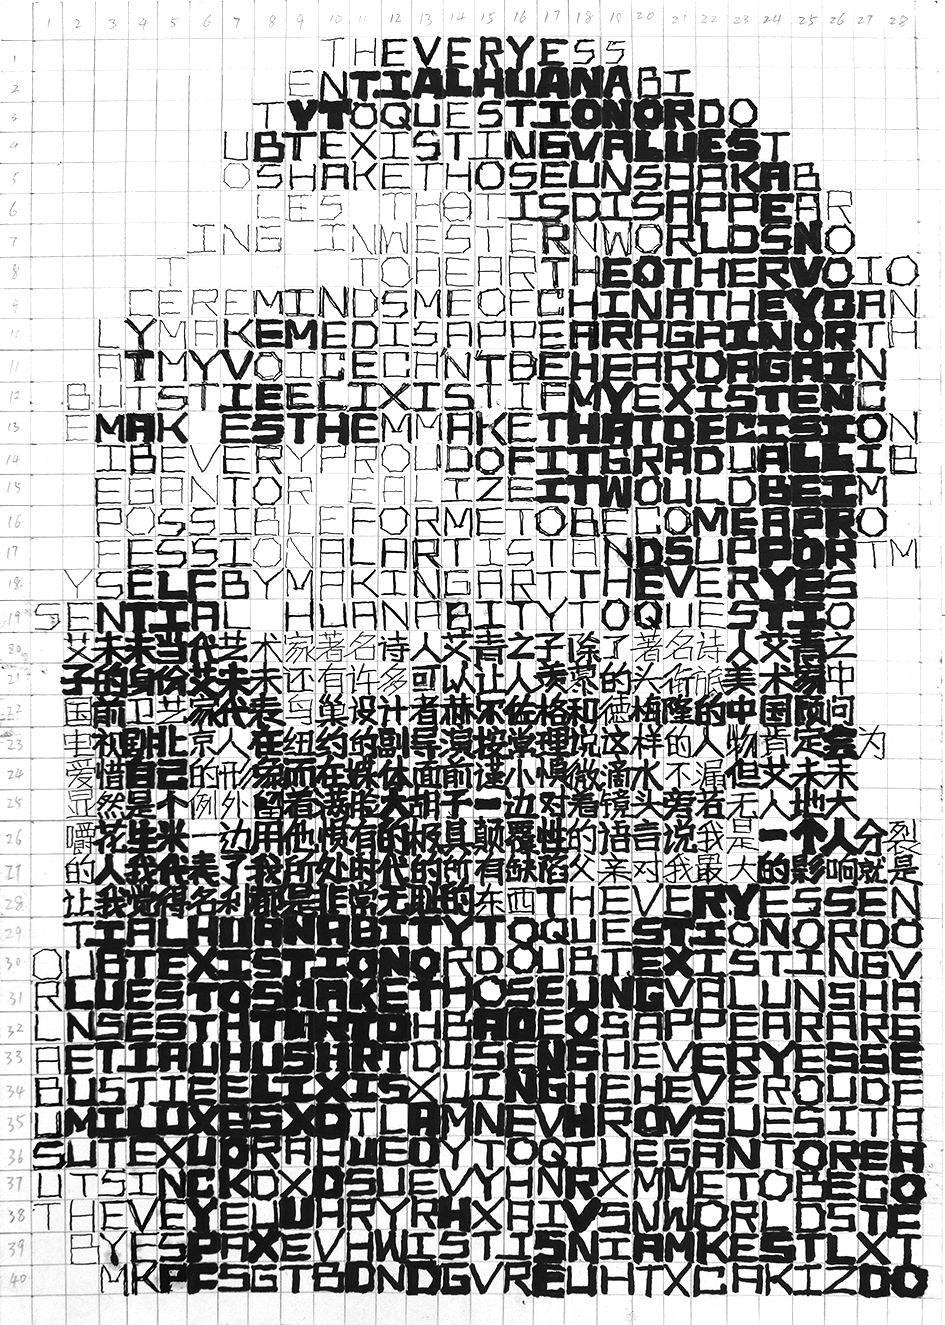 1 2 3 4 5 6 7 8 9 10 11 12 13 14 15 16 17 18 19 20 21 22 23 24 25 26 27 28
1 THEVERYESS
2 ENTIALHUANABI
3 TYTOQUESTIONORDO
4 UBTEXISTINGVALUEST
5 OSHAKETHOSEUNSHAKAB
6 LES THATISDISAPPEAR
7 ING INWESTERNWORLDSNO
8 T TOHEARTHEOTHERVOIO
9 CEREMINDSMEOFCHINATHEYCAN
10 LYMAKEMEDISAPPEARAGAINORTH
11 ATMYVOICECANTBEHEARDAGAIN
12 BUTSTIEELIXISTIFMYEXISTENC
13 EMAK ESTHEMMAKETHATDECISION
14 IBEVERYPROUDOFITGRADUALLIB
15 EGANTOR EALIZEITWOULDBEIM
16 POSSIBLEFORMETOBECOMEAPRO
17 FESSIONALARTISTANDSUPPORTM
18 YSELFBYMAKINGARTTHEVERYES
19 SENTIAL HUANABITYTOQUESTIO
20 艾未未当代艺术家著名诗人艾青之子除了著名诗人艾青之
21 子的身份艾未未还有许多可以让人羡慕的头衔旅美术家中
22 国前卫艺家代表鸟巢设计者赫尔佐格和德梅隆的中国顾问
23 电视剧北京人在纽约的副导演按常理说这样的人物肯定会为
24 爱惜自己的形象而在媒体面前谨小慎微滴水不漏但艾未未
25 显然是个例外留着满脸大胡子一边对着镜头旁若无人地大
26 嚼花生米一边用他惯有的极具颠覆性的语言说我是一个人分裂
27 的人我代表了我所处时代的所有缺陷父亲对我最大的影响就是
28 让我觉得名利都是非常无耻的东西THEVERYESSEN
29 TIALHUANABITYTOQUESTIONORDO
30 OUBTEXISTIONORDOUBTEXISTINGV
31 RLUESTOSHAKETHOSEUNGVALUNSHA
32 LNSESTHTHRTOHBAOEOSAPPEARARG
33 AETIAUHUSHRTDUSENGHEVERYESSE
34 BUSTIEELIXISXUINGHEHEVEROUDE
35 UMILOXBSXOTLAMNEVHROVSUESITA
36 SUTEXUORAHUEDYTOQTDEGANTOREH
37 UTSINCKDXDSUEVYHNRXMMETOBEGO
38 THEVEYEUUHRYRHXAIVSNWORLDSTE
39 BYESPAXEVHWISTISNIAMKESTLXT
40 MKFESGTBDNDGVREUHTXCAKIZDO